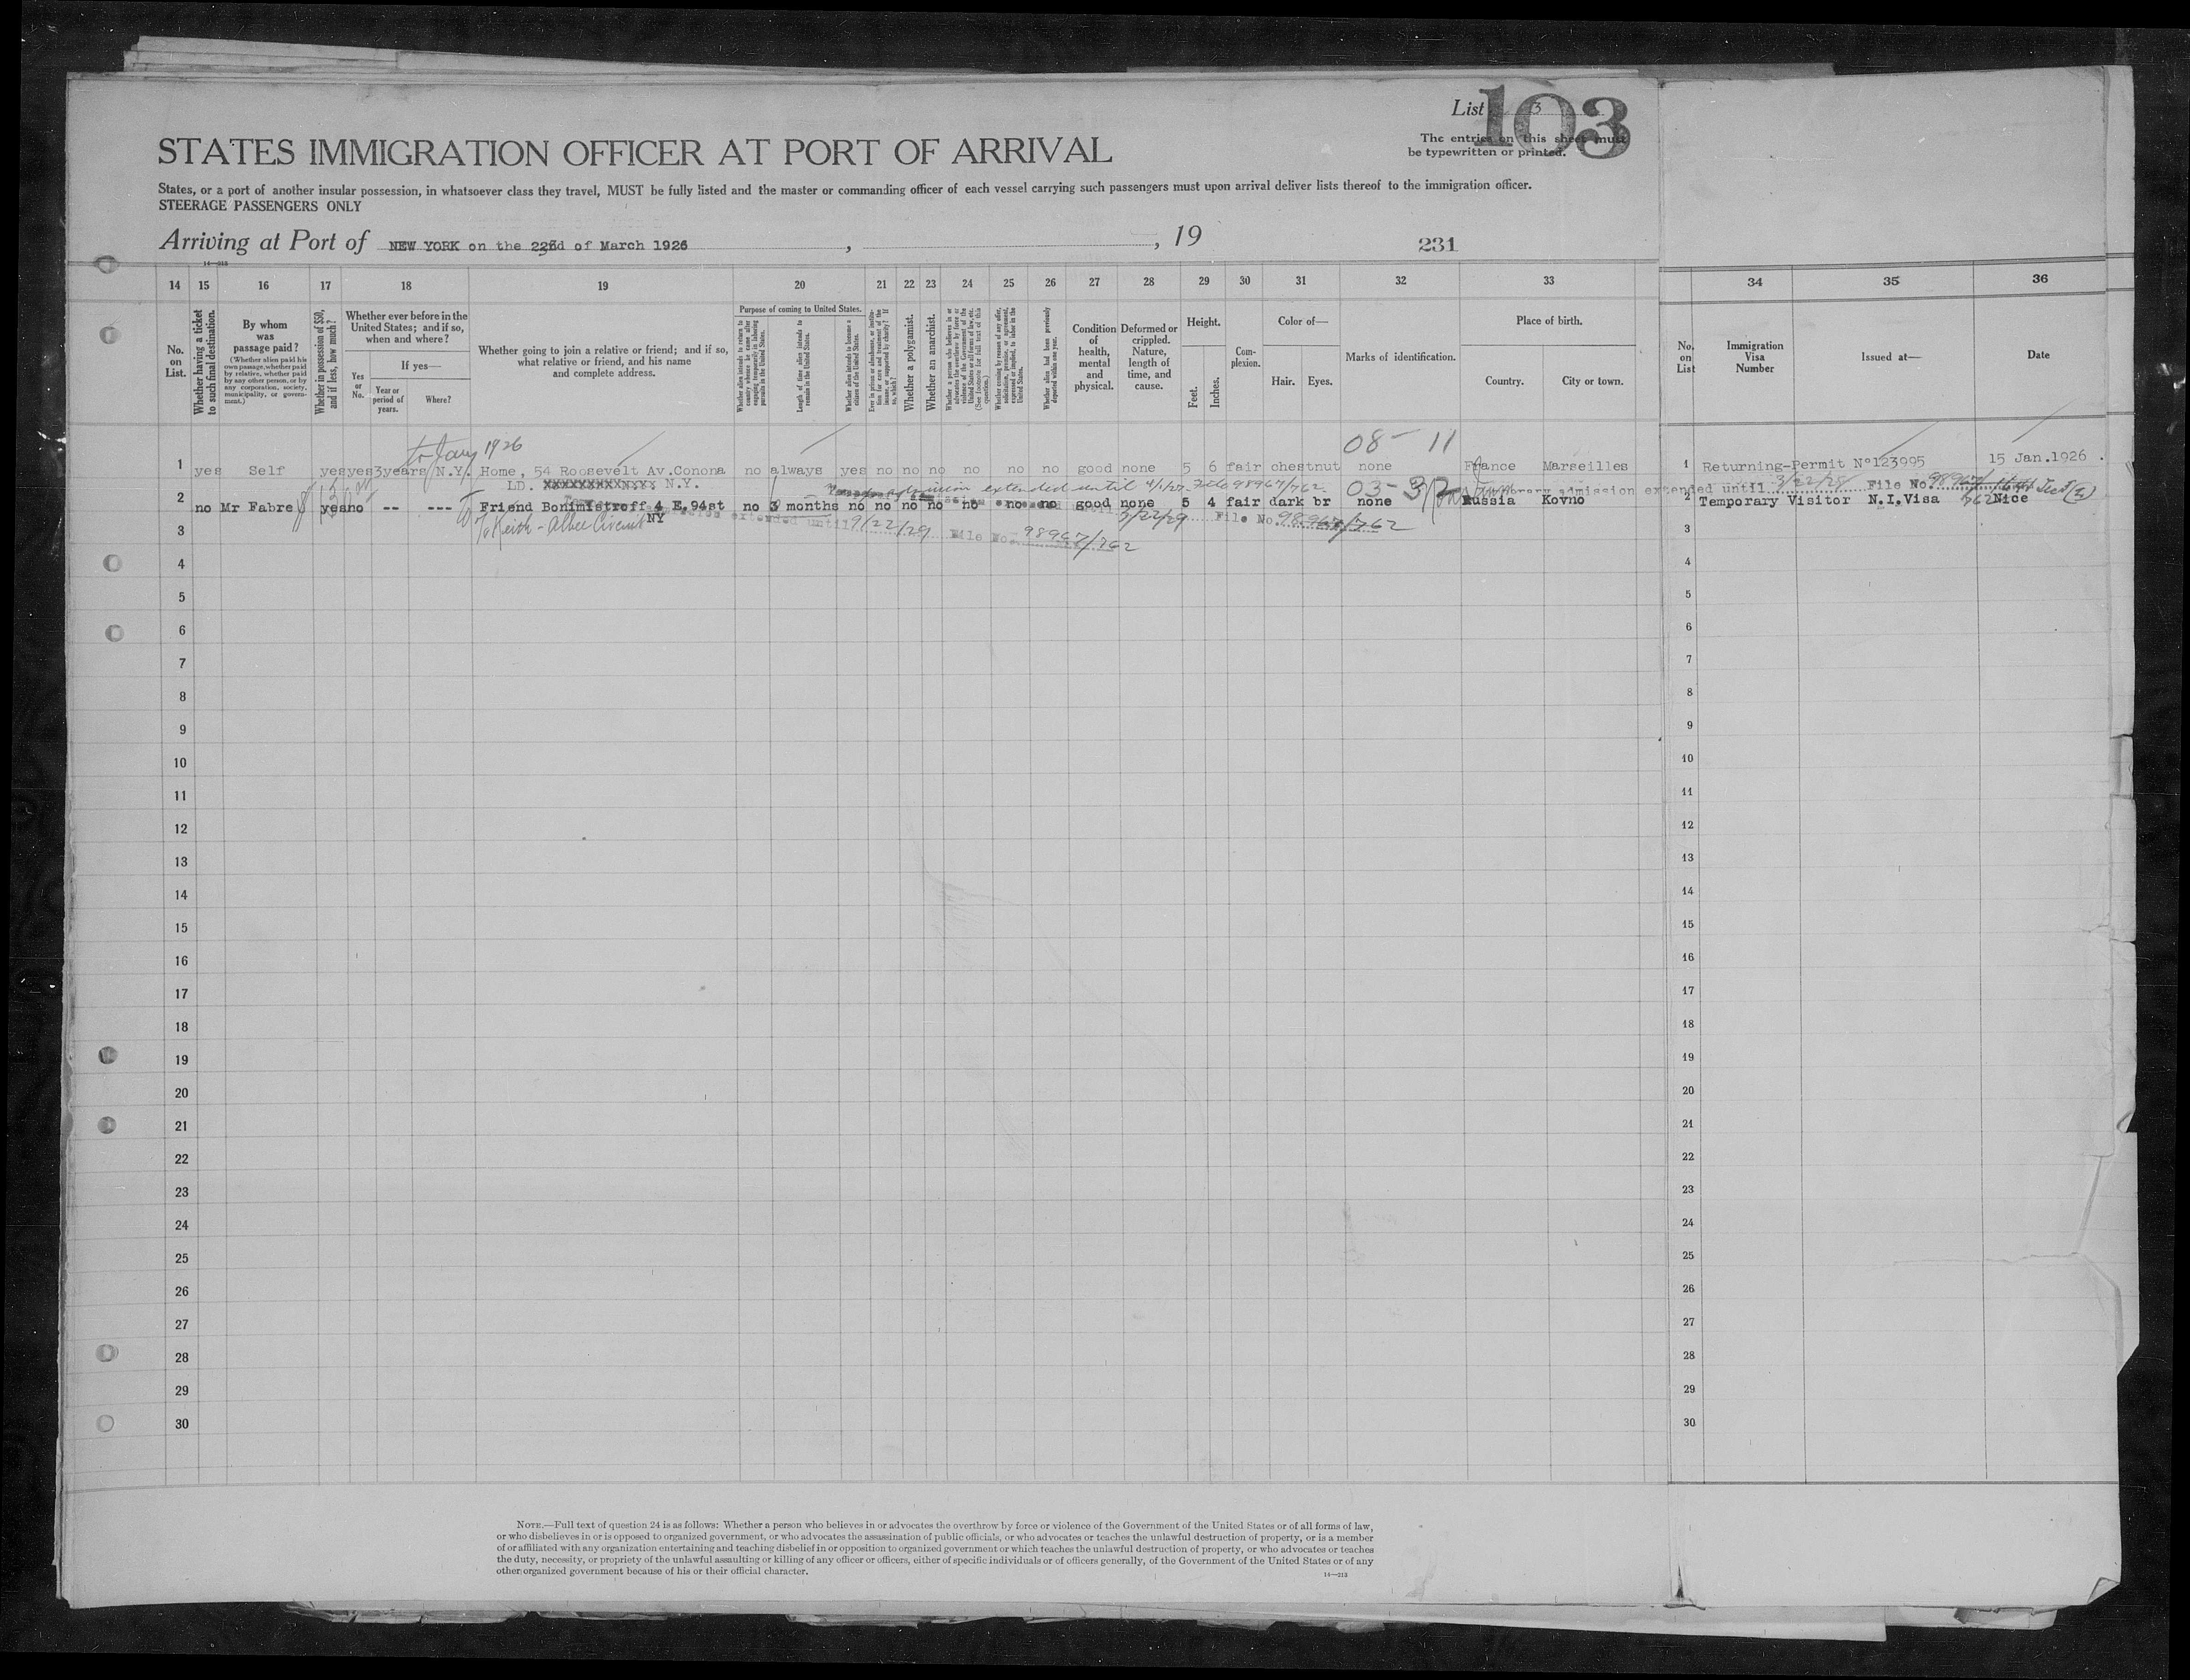 List 3
103
The entries on this sheet must
be typewritten or printed.
STATES IMMIGRATION OFFICER AT PORT OF ARRIVAL
States, or a port of another insular possession, in whatsoever class they travel, MUST be fully listed and the master or commanding officer of each vessel carrying such passengers must upon arrival deliver lists thereof to the immigration officer.
STEERAGE PASSENGERS ONLY
Arriving at Port of NEW YORK on the 22nd of March 1926 , , 19 231
14—213
14 15 16 17 18 19 20 21 22 23 24 25 26 27 28 29 30 31 32 33 34 35 36
No. on List.
Whether having a ticket to such final destination.
By whom was passage paid?
(Whether alien paid his own passage, whether paid by relative, whether paid by any other person, or by any corporation, society, municipality, or government.)
Whether in possession of $50, and if less, how much?
Whether ever before in the United States; and if so, when and where?
Yes or No.
If yes—
Year or period of years.
Where?
Whether going to join a relative or friend; and if so, what relative or friend, and his name and complete address.
Purpose of coming to United States.
Whether alien intends to return to country whence he came after engaging temporarily in laboring pursuits in the United States.
Length of time alien intends to remain in the United States.
Whether alien intends to become a citizen of the United States.
Ever in prison or almshouse, or institution for care and treatment of the insane, or supported by charity? If so, which?
Whether a polygamist.
Whether an anarchist.
Whether a person who believes in or advocates the overthrow by force or violence of the Government of the United States or all forms of law, etc. (See footnote for full text of this question.)
Whether coming by reason of any offer, solicitation, promise, or agreement, expressed or implied, to labor in the United States.
Whether alien had been previously deported within one year.
Condition of health, mental and physical.
Deformed or crippled. Nature, length of time, and cause.
Height.
Feet.
Inches.
Complexion.
Color of—
Hair.
Eyes.
Marks of identification.
Place of birth.
Country.
City or town.
No. on List
Immigration Visa Number
Issued at—
Date
to Jany 1926
08- 11
1 yes Self yes yes 3years N.Y. Home, 54 Roosevelt Av.Conona no always yes no no no no no no good none 5 6 fair chestnut none France Marseilles 1 Returning-Permit N°123995 15 Jan.1926 .
LD. XXXXXXXXXNXYX N.Y.
admission extended until 4/1/27 File 98967/762
03- 3
Temporary admission extended until 3/22/28 File No. 98967/762
2 no Mr Fabre yes no -- --- Friend Bonimistroff 4 E.94st no 3 months no no no no no no no good none 5 4 fair dark br none Russia Kovno 2 Temporary Visitor N.I.Visa Nice
NY
To Keith-Albee Circuit
3/22/29 File No. 98967/762
extended until 9/22/29 File No. 98967/762
3 3
4 4
5 5
6 6
7 7
8 8
9 9
10 10
11 11
12 12
13 13
14 14
15 15
16 16
17 17
18 18
19 19
20 20
21 21
22 22
23 23
24 24
25 25
26 26
27 27
28 28
29 29
30 30
NOTE.—Full text of question 24 is as follows: Whether a person who believes in or advocates the overthrow by force or violence of the Government of the United States or of all forms of law,
or who disbelieves in or is opposed to organized government, or who advocates the assassination of public officials, or who advocates or teaches the unlawful destruction of property, or is a member
of or affiliated with any organization entertaining and teaching disbelief in or opposition to organized government or which teaches the unlawful destruction of property, or who advocates or teaches
the duty, necessity, or propriety of the unlawful assaulting or killing of any officer or officers, either of specific individuals or of officers generally, of the Government of the United States or of any
other organized government because of his or their official character.
14—213